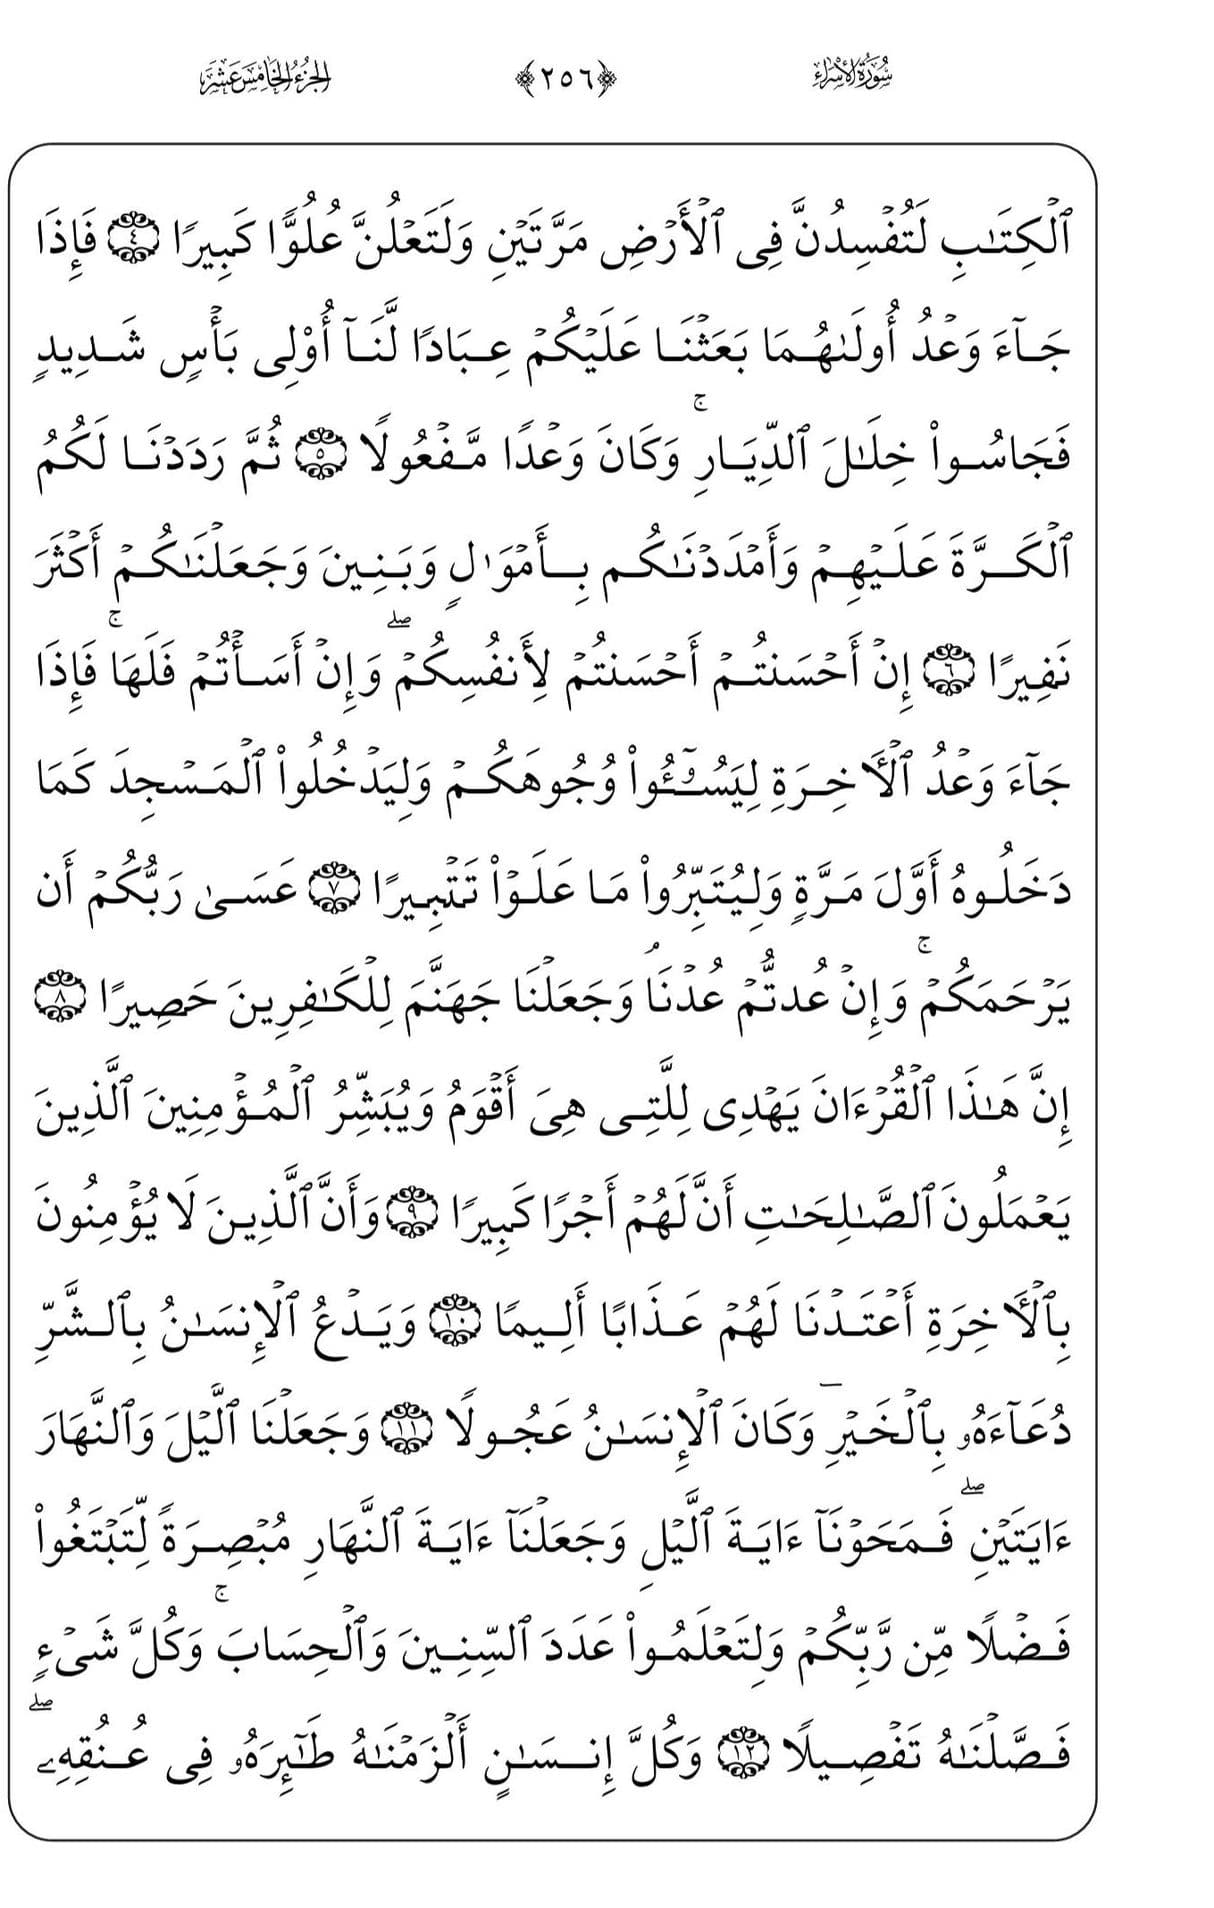 سُورَةُ الإِسْرَاءِ ﴿٢٥٦﴾ الجُزْءُ الخَامِسَ عَشَرَ
ٱلْكِتَـٰبِ لَتُفْسِدُنَّ فِى ٱلْأَرْضِ مَرَّتَيْنِ وَلَتَعْلُنَّ عُلُوًّا كَبِيرًا ٤ فَإِذَا
جَآءَ وَعْدُ أُولَىٰهُمَا بَعَثْنَا عَلَيْكُمْ عِبَادًا لَّنَآ أُوْلِى بَأْسٍ شَدِيدٍ
فَجَاسُواْ خِلَـٰلَ ٱلدِّيَارِ ۚ وَكَانَ وَعْدًا مَّفْعُولًا ٥ ثُمَّ رَدَدْنَا لَكُمُ
ٱلْكَرَّةَ عَلَيْهِمْ وَأَمْدَدْنَـٰكُم بِأَمْوَٰلٍ وَبَنِينَ وَجَعَلْنَـٰكُمْ أَكْثَرَ
نَفِيرًا ٦ إِنْ أَحْسَنتُمْ أَحْسَنتُمْ لِأَنفُسِكُمْ ۖ وَإِنْ أَسَأْتُمْ فَلَهَا ۚ فَإِذَا
جَآءَ وَعْدُ ٱلْأَخِرَةِ لِيَسُـۥٓـُٔواْ وُجُوهَكُمْ وَلِيَدْخُلُواْ ٱلْمَسْجِدَ كَمَا
دَخَلُوهُ أَوَّلَ مَرَّةٍ وَلِيُتَبِّرُواْ مَا عَلَوْاْ تَتْبِيرًا ٧ عَسَىٰ رَبُّكُمْ أَن
يَرْحَمَكُمْ ۚ وَإِنْ عُدتُّمْ عُدْنَا ۘ وَجَعَلْنَا جَهَنَّمَ لِلْكَـٰفِرِينَ حَصِيرًا ٨
إِنَّ هَـٰذَا ٱلْقُرْءَانَ يَهْدِى لِلَّتِى هِىَ أَقْوَمُ وَيُبَشِّرُ ٱلْمُؤْمِنِينَ ٱلَّذِينَ
يَعْمَلُونَ ٱلصَّـٰلِحَـٰتِ أَنَّ لَهُمْ أَجْرًا كَبِيرًا ٩ وَأَنَّ ٱلَّذِينَ لَا يُؤْمِنُونَ
بِٱلْأَخِرَةِ أَعْتَدْنَا لَهُمْ عَذَابًا أَلِيمًا ١٠ وَيَدْعُ ٱلْإِنسَـٰنُ بِٱلشَّرِّ
دُعَآءَهُۥ بِٱلْخَيْرِ وَكَانَ ٱلْإِنسَـٰنُ عَجُولًا ١١ وَجَعَلْنَا ٱلَّيْلَ وَٱلنَّهَارَ
ءَايَتَيْنِ ۖ فَمَحَوْنَآ ءَايَةَ ٱلَّيْلِ وَجَعَلْنَآ ءَايَةَ ٱلنَّهَارِ مُبْصِرَةً لِّتَبْتَغُواْ
فَضْلًا مِّن رَّبِّكُمْ وَلِتَعْلَمُواْ عَدَدَ ٱلسِّنِينَ وَٱلْحِسَابَ ۚ وَكُلَّ شَىْءٍ
فَصَّلْنَـٰهُ تَفْصِيلًا ١٢ وَكُلَّ إِنسَـٰنٍ أَلْزَمْنَـٰهُ طَـٰٓئِرَهُۥ فِى عُنُقِهِۦ ۖ